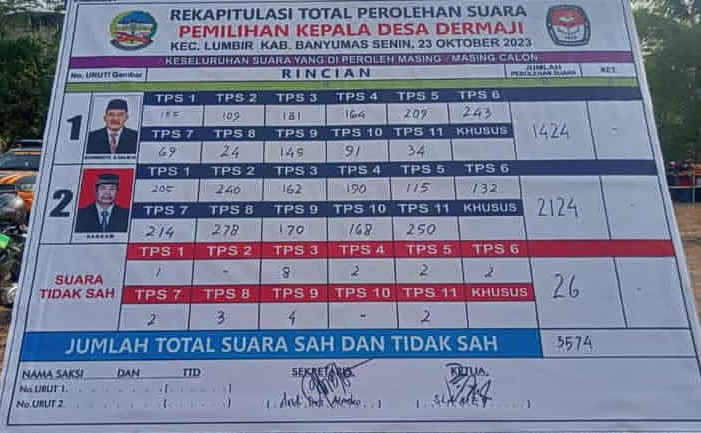 REKAPITULASI TOTAL PEROLEHAN SUARA
PEMILIHAN KEPALA DESA DERMAJI
KEC. LUMBIR KAB. BANYUMAS SENIN, 23 OKTOBER 2023
KESELURUHAN SUARA YANG DI PEROLEH MASING - MASING CALON
No. URUT/ Gambar RINCIAN JUMLAH PEROLEHAN SUARA KET.
TPS 1 TPS 2 TPS 3 TPS 4 TPS 5 TPS 6
1 155 109 181 164 209 243 1424 -
TPS 7 TPS 8 TPS 9 TPS 10 TPS 11 KHUSUS
69 24 145 91 34
TPS 1 TPS 2 TPS 3 TPS 4 TPS 5 TPS 6
2 205 240 162 190 115 132 2124 -
TPS 7 TPS 8 TPS 9 TPS 10 TPS 11 KHUSUS
214 278 170 168 250
TPS 1 TPS 2 TPS 3 TPS 4 TPS 5 TPS 6
SUARA TIDAK SAH 1 - 8 2 2 2 26 -
TPS 7 TPS 8 TPS 9 TPS 10 TPS 11 KHUSUS
2 3 4 - 2
JUMLAH TOTAL SUARA SAH DAN TIDAK SAH 3574
NAMA SAKSI DAN TTD SEKRETARIS KETUA
No.URUT 1. . . . . . . . . (. . . . . . .)
No.URUT 2. . . . . . . . . (. . . . . . .)